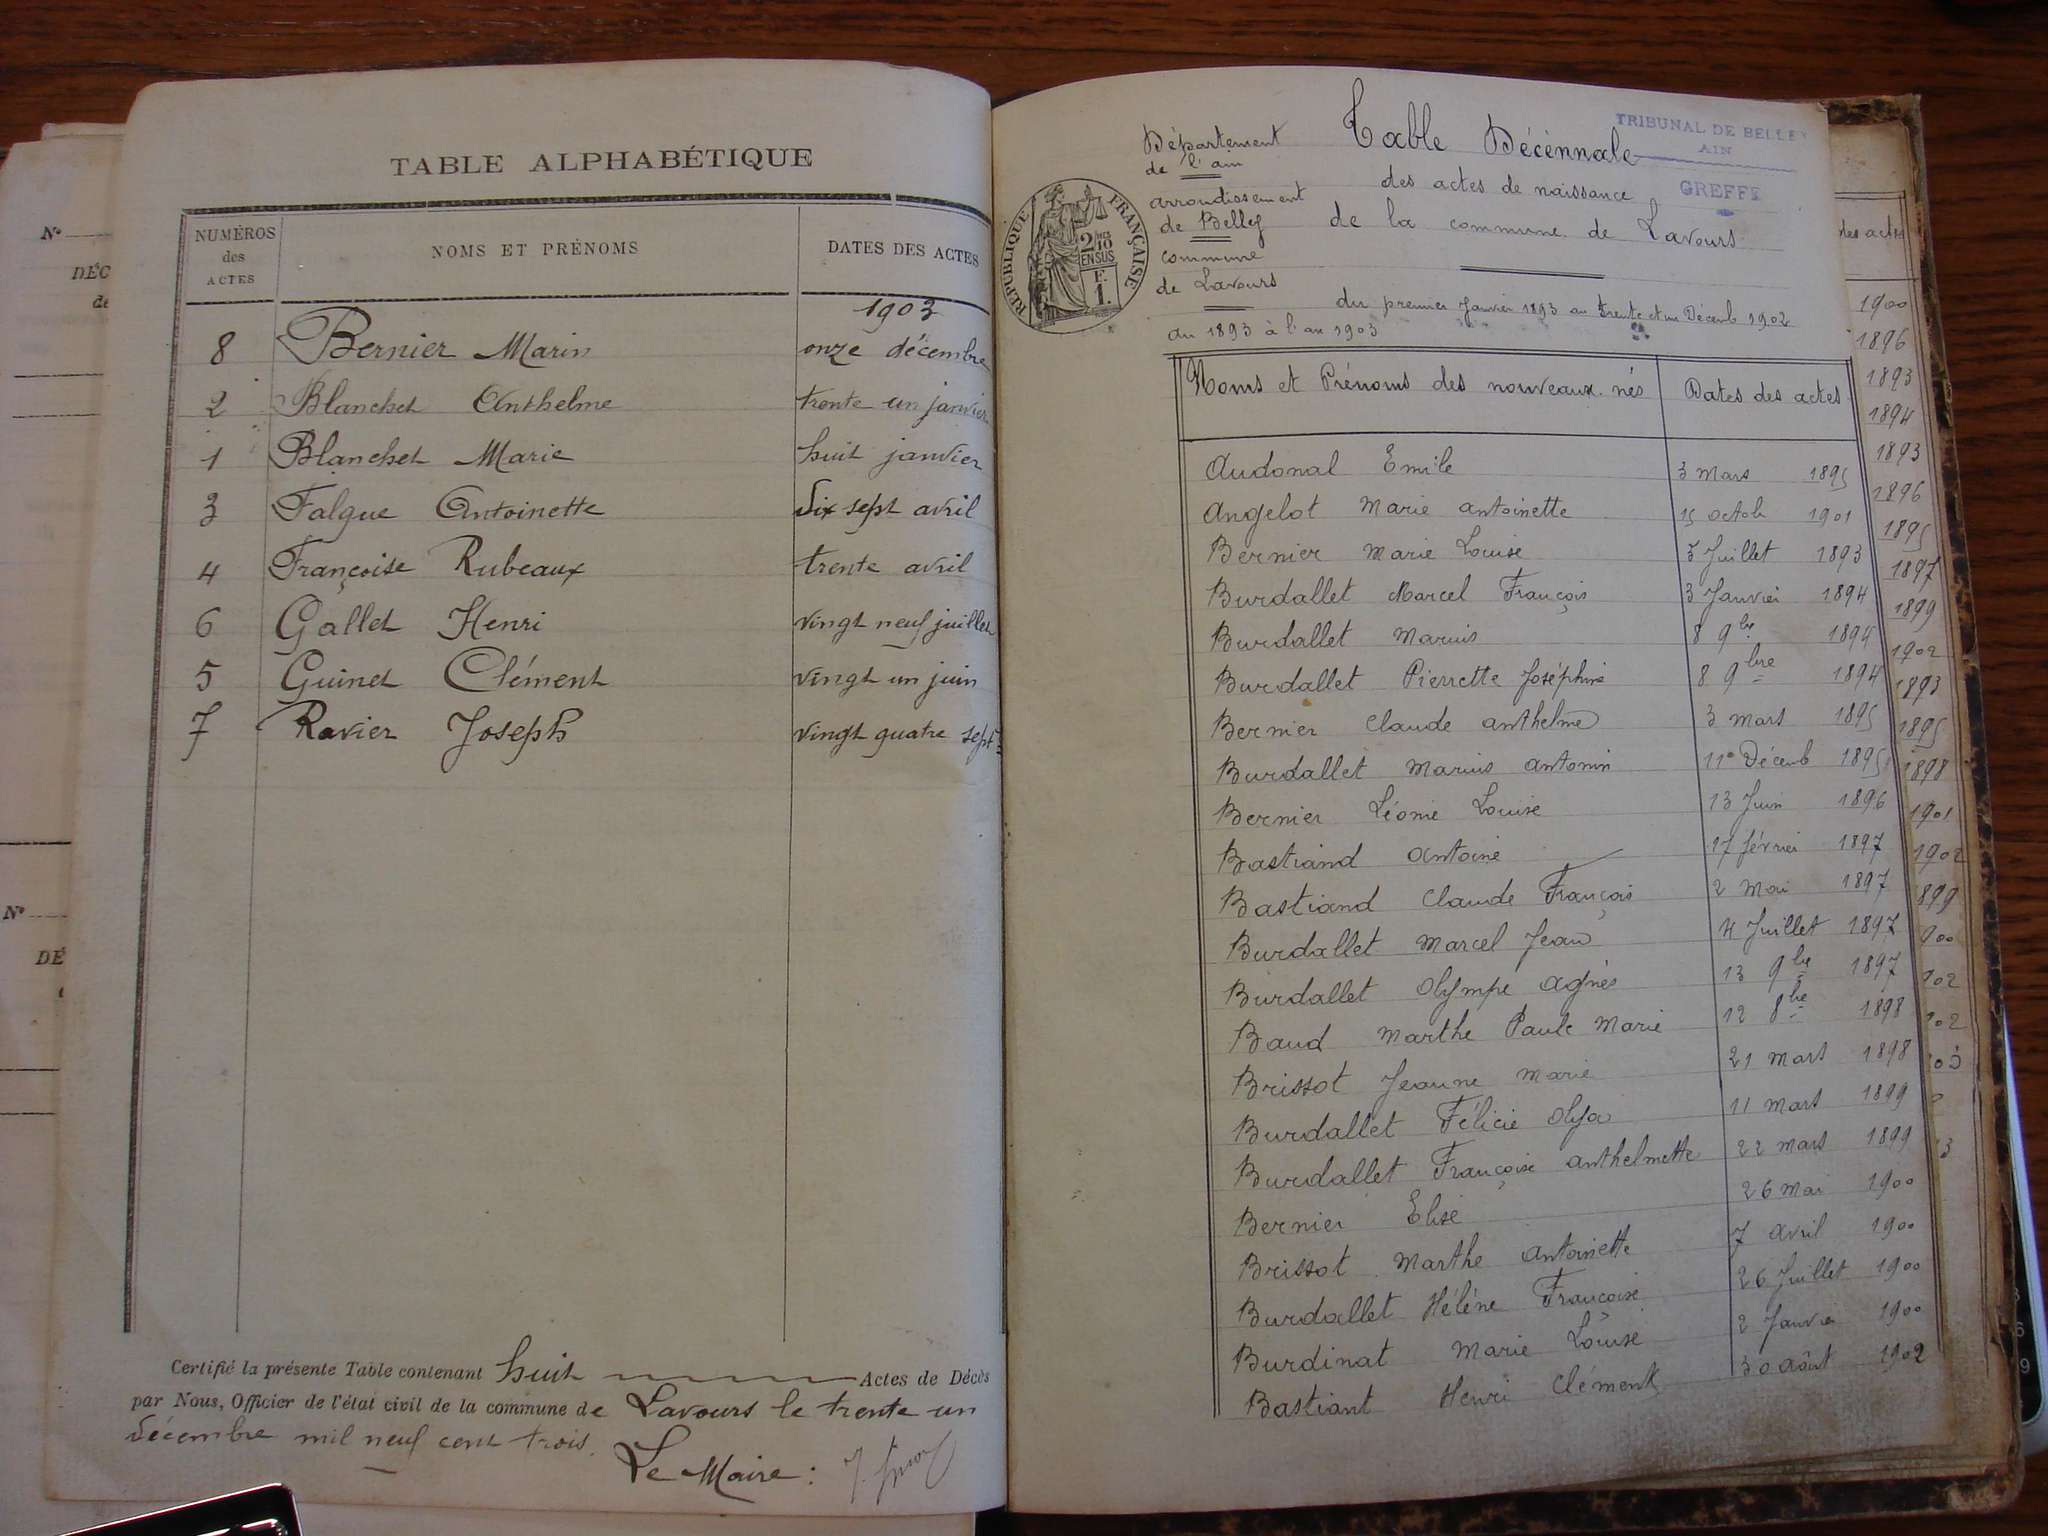 N°
DÉC
de
N°
DÉ
TABLE ALPHABÉTIQUE
NUMÉROS des ACTES NOMS ET PRÉNOMS DATES DES ACTES
1903
8 Bernier Marin onze décembre
2 Blanchet Anthelme trente un janvier
1 Blanchet Marie huit janvier
3 Falque Antoinette Dix sept avril
4 Françoise Rubeaux trente avril
6 Gallet Henri vingt neuf juillet
5 Guinet Clément vingt un juin
7 Ravier Joseph vingt quatre sept
Certifié la présente Table contenant huit Actes de Décès
par Nous, Officier de l'état civil de la commune de Lavours le trente un
décembre mil neuf cent trois.
Le Maire :
Département
de l'ain
arrondissement
de Belley
commune
de Lavours
an 1893 à l'an 1903
RÉPUBLIQUE FRANÇAISE
2/10 EN SUS
F. 1.
TRIBUNAL DE BELLEY
AIN
GREFFE
Table Décénnale
des actes de naissance
de la commune de Lavours
du premier Janvier 1893 au trente et un Décemb 1902
Noms et Prénoms des nouveaux-nés Dates des actes
Audonal Emile 3 Mars 1895
Angelot Marie antoinette 15 octob 1901
Bernier Marie Louise 5 Juillet 1893
Burdallet Marcel François 3 Janvier 1894
Burdallet Marius 8 9bre 1894
Burdallet Pierrette Joséphine 8 9bre 1894
Bernier Claude anthelme 3 mars 1895
Burdallet Marius antonin 11 Décemb 1895
Bernier Léonie Louise 13 Juin 1896
Bastiand antoine 17 février 1897
Bastiand Claude François 2 Mai 1897
Burdallet Marcel Jean 4 Juillet 1897
Burdallet Olympe agnès 13 9bre 1897
Baud Marthe Paule Marie 12 8bre 1898
Brissot Jeanne Marie 21 mars 1898
Burdallet Félicie Olga 11 mars 1899
Burdallet Françoise anthelmette 22 mars 1899
Bernier Elise 26 mai 1900
Brissot Marthe antoinette 7 avril 1900
Burdallet Hélène Françoise 26 Juillet 1900
Burdinat Marie Louise 2 Janvier 1900
Bastiant Henri Clément 30 août 1902
des actes
1900
1896
1893
1894
1893
1896
1895
1897
1899
1902
1893
1895
1898
1901
1902
899
900
902
102